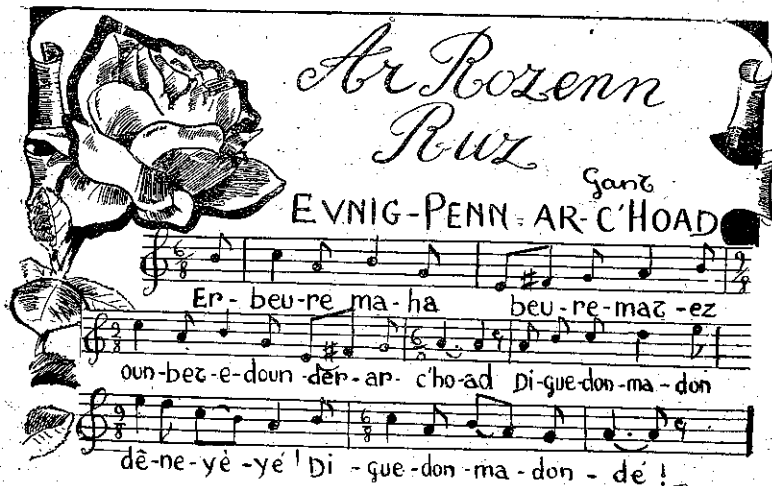 Ar Rozenn
Ruz
Gant
EVNIG-PENN-AR-C'HOAD
6/8 9/8
Er-beu-re ma-ha beu-re-maz-ez
9/8 6/8
oun-bez-e-doun-dēr-ar-c'ho-ad Di-gue-don-ma-don
9/8 6/8
dē-ne-yè-yé! Di-gue-don-ma-don-dé!